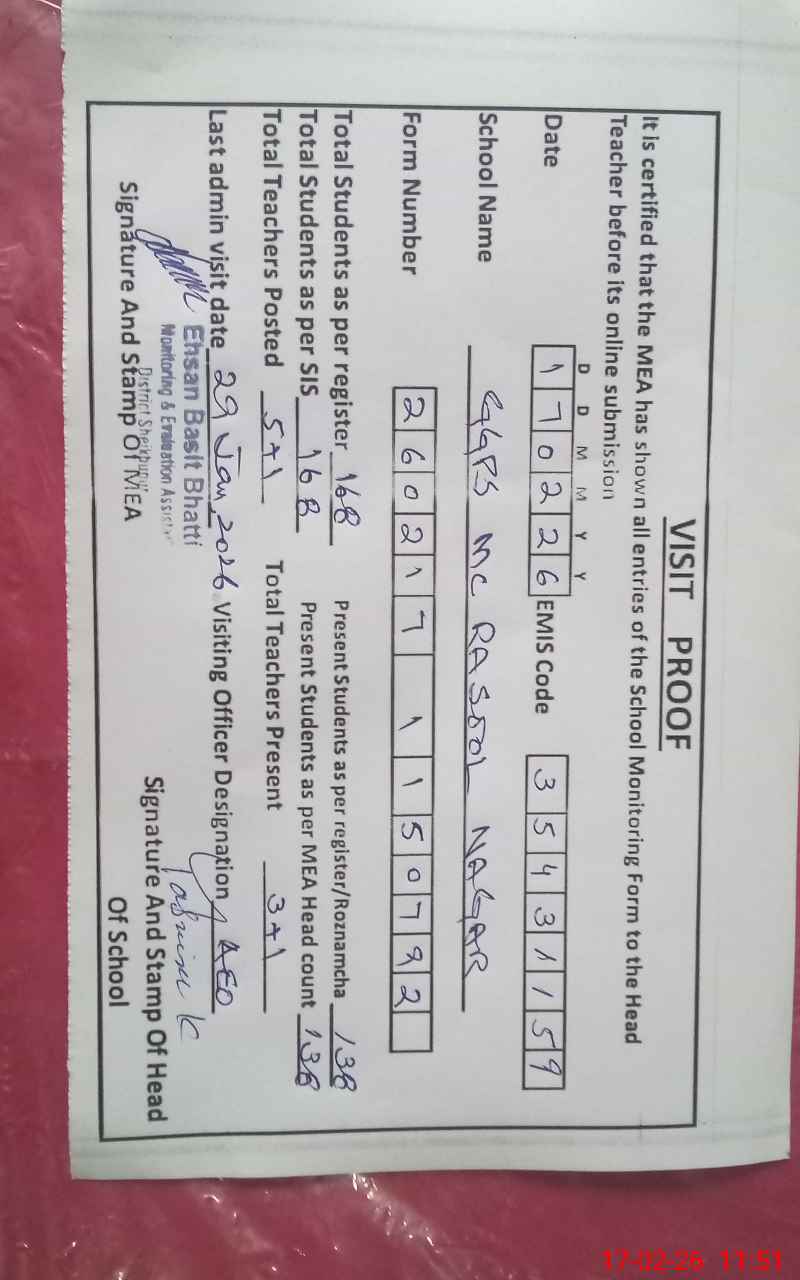 VISIT PROOF
It is certified that the MEA has shown all entries of the School Monitoring Form to the Head
Teacher before its online submission
D D M M Y Y
Date 170226 EMIS Code 35431159
School Name GGPS MC RASOOL NAGAR
Form Number 260217 1150792
Total Students as per register 168 Present Students as per register/Roznamcha 138
Total Students as per SIS 168 Present Students as per MEA Head count 138
Total Teachers Posted 5+1 Total Teachers Present 3+1
Last admin visit date 29 Jan, 2026 Visiting Officer Designation AEO
Ehsan Basit Bhatti
Monitoring & Evaluation
District Sheikhupura
Signature And Stamp Of MEA
Signature And Stamp Of Head
Of School
17-02-26 11:51